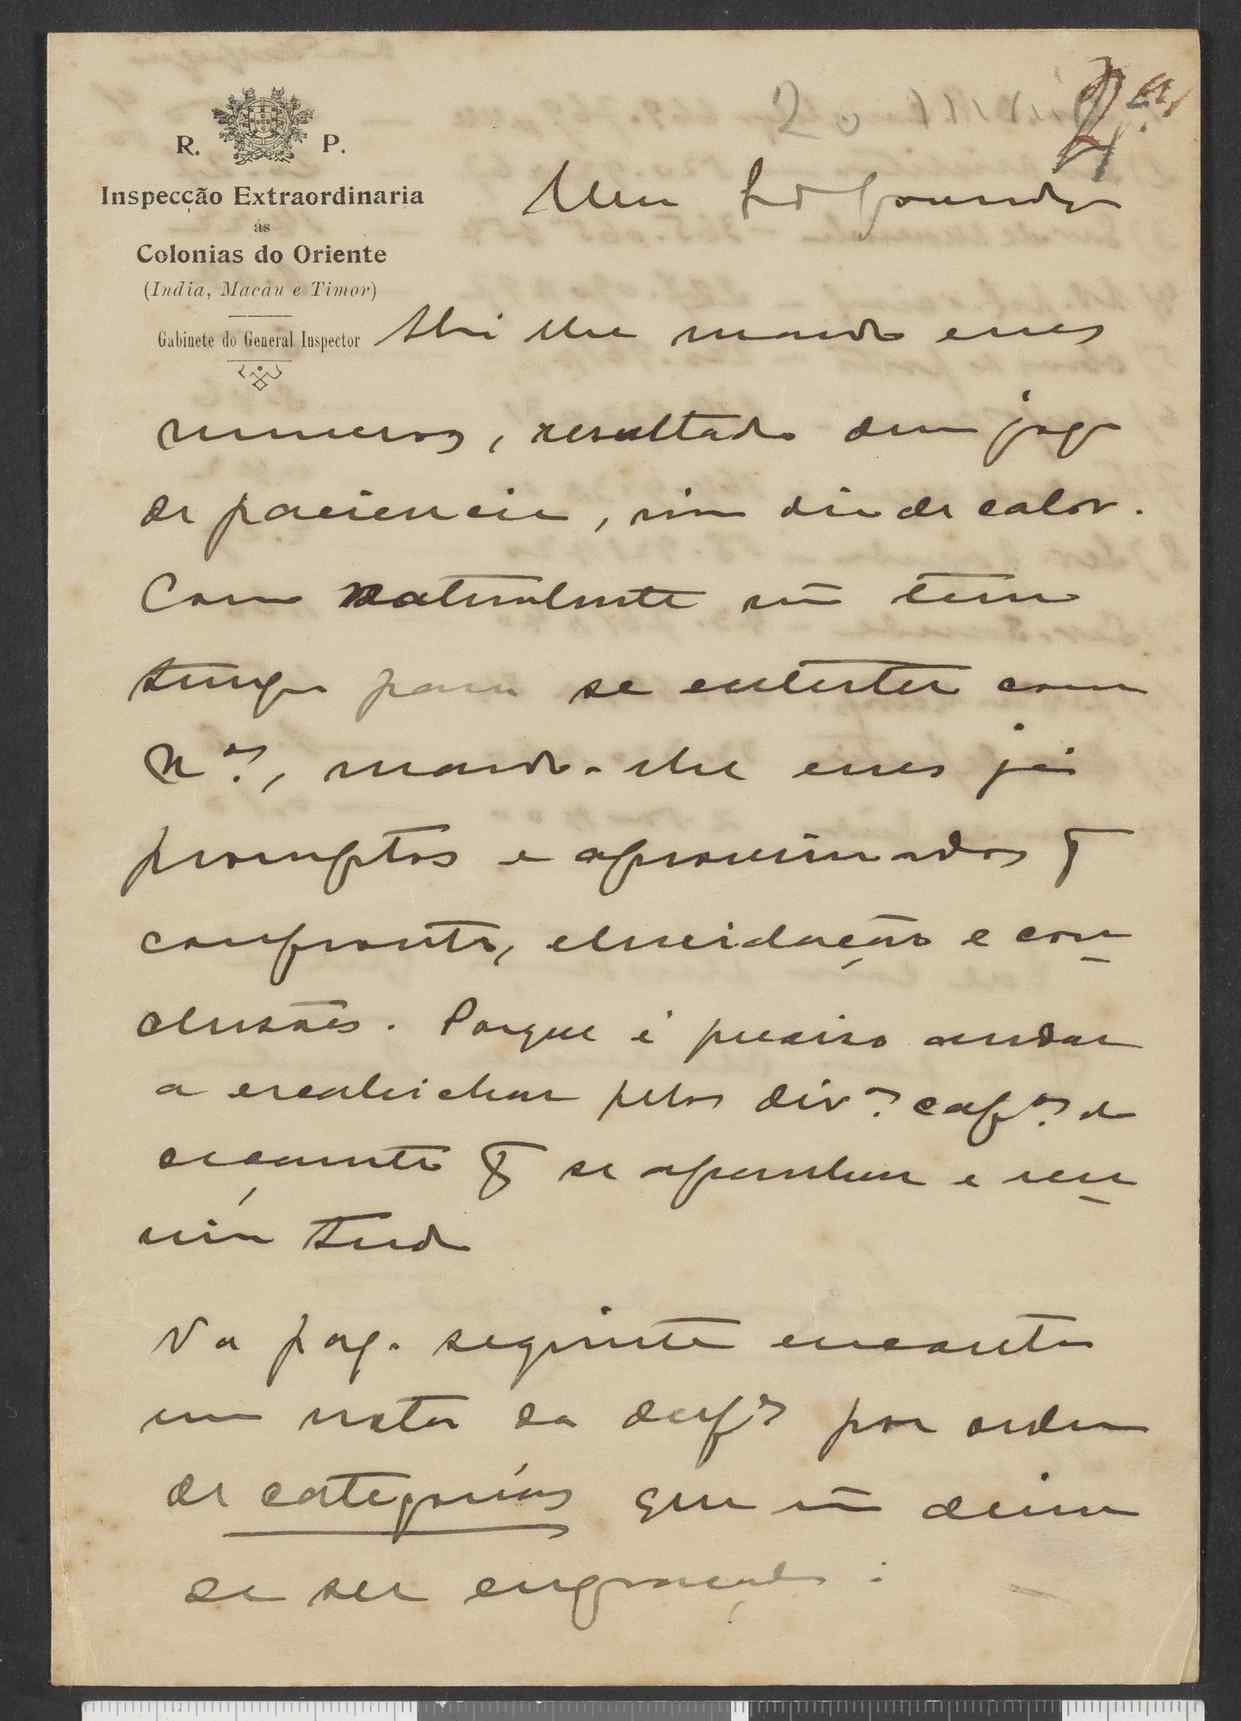 R. P.
Inspecção Extraordinaria
ás
Colonias do Oriente
(India, Macau e Timor)
Gabinete do General Inspector
20
2.ª
Meu
Ahi lhe mando esses
numeros, resultado dum jogo
de paciencia, num dia de calor.
Como naturalmte nã tem
tempo para se entreter com
N.os, mando-lhe esses já
promptos e aproximados pª
confronto, elucidação e con
clusões. Porque é preciso andar
a escabichar pelos div.os cap.os do
orçamento pª se apanhar e reu
nir tudo
Na pag. seguinte encontra
um nota da desp.as por ordem
de categorias que nã deixa
de ser engraçada: